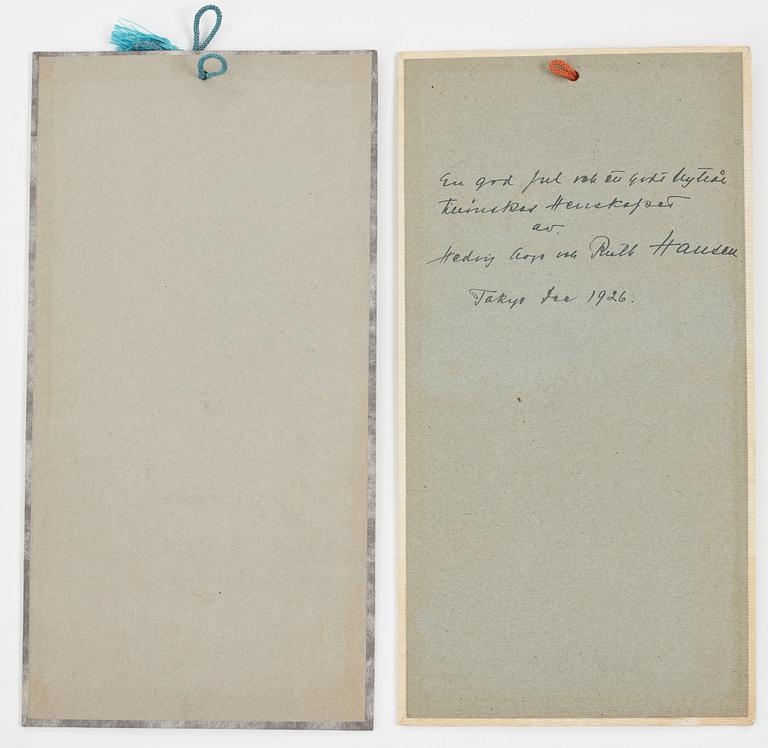 En god jul och ett gott Nytt år
tillönskas Herrskapet
av.
Hedvig Aage och Ruth Hansen
Tokyo Dec 1926.